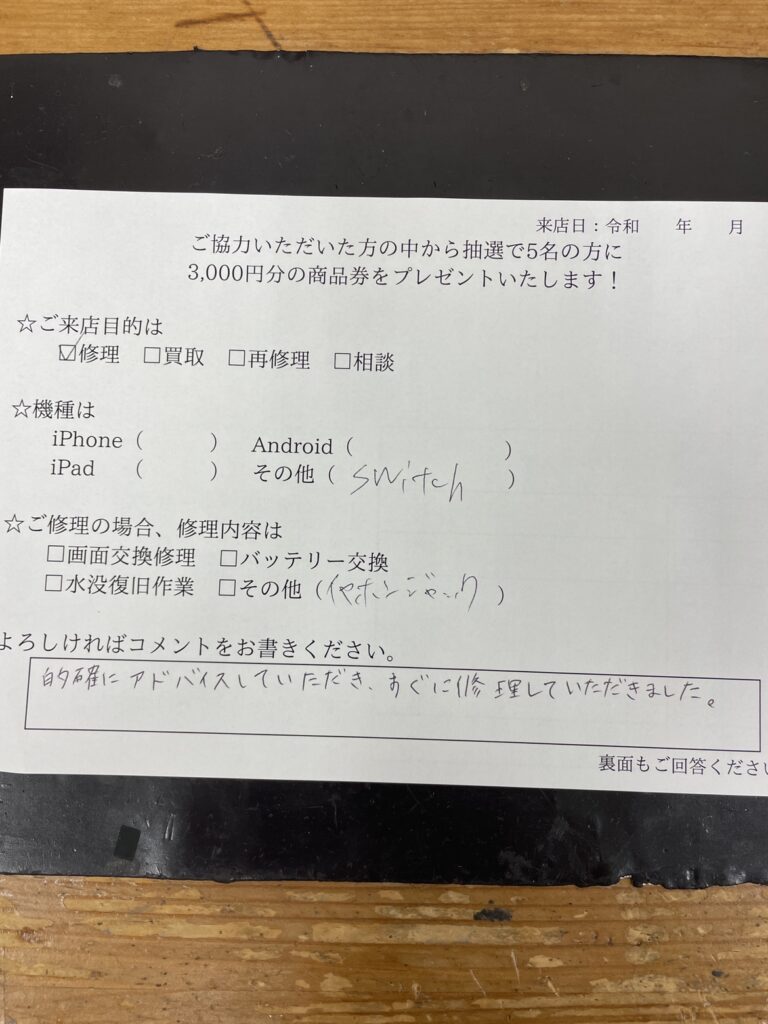 来店日：令和　　年　　月
ご協力いただいた方の中から抽選で5名の方に
3,000円分の商品券をプレゼントいたします！
☆ご来店目的は
☑修理　□買取　□再修理　□相談
☆機種は
iPhone（　　　）　Android（　　　　　　　）
iPad　（　　　）　その他（ switch　）
☆ご修理の場合、修理内容は
□画面交換修理　□バッテリー交換
□水没復旧作業　□その他（イヤホンジャック　）
よろしければコメントをお書きください。
的確にアドバイスしていただき、すぐに修理していただきました。
裏面もご回答ください